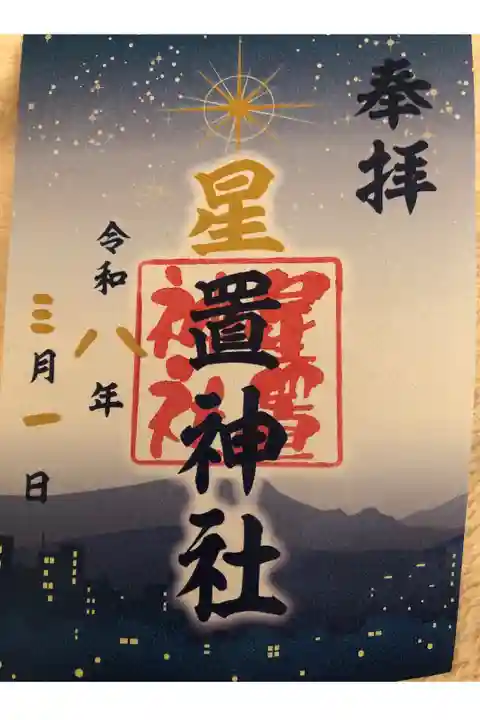 奉拝
星置神社
星置神社
令和八年
三月一日